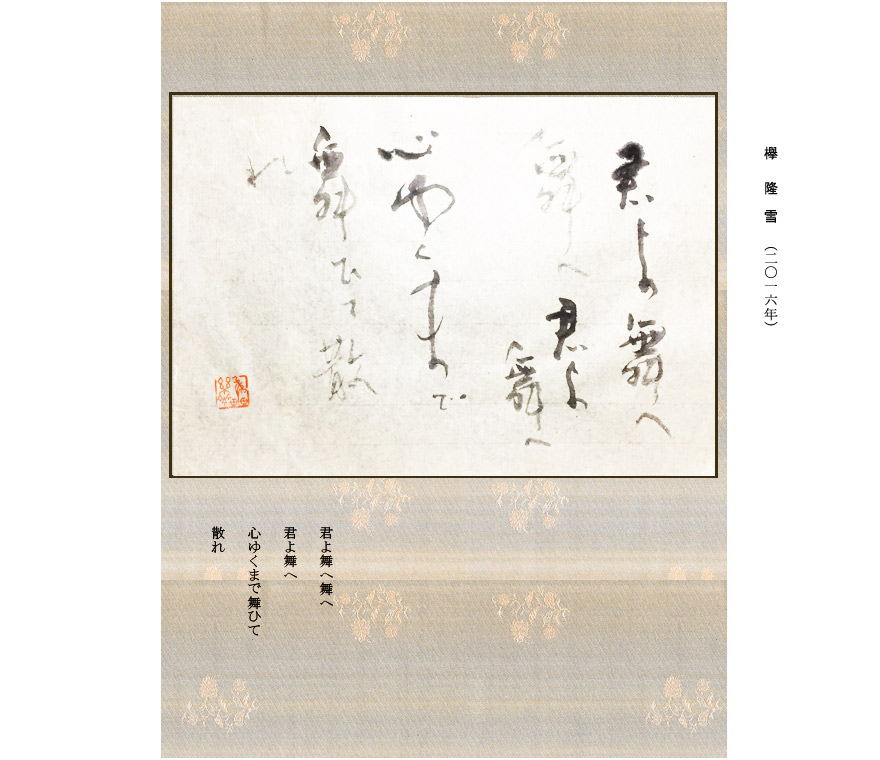 欅 隆 雪 （二〇一六年）
君よ舞へ
舞へ君よ
舞へ
心ゆくまで
舞ひて散
れ
君よ舞へ舞へ
君よ舞へ
心ゆくまで舞ひて
散れ